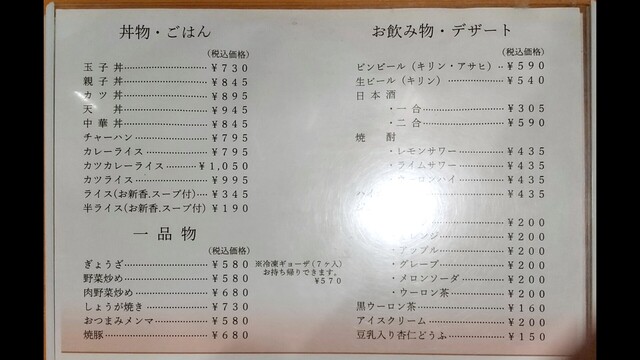 丼物・ごはん
（税込価格）
玉子丼…………………………￥７３０
親子丼…………………………￥８４５
カツ丼…………………………￥８９５
天　丼…………………………￥９４５
中華丼…………………………￥８４５
チャーハン……………………￥７９５
カレーライス…………………￥７９５
カツカレーライス…………￥１,０５０
カツライス……………………￥９９５
ライス(お新香,スープ付)…￥３４５
半ライス(お新香,スープ付)￥１９０
一品物
（税込価格）
ぎょうざ………………………￥５８０
※冷凍ギョーザ（７ヶ入）
お持ち帰りできます。
￥５７０
野菜炒め………………………￥５８０
肉野菜炒め……………………￥６８０
しょうが焼き…………………￥７３０
おつまみメンマ………………￥５８０
焼豚……………………………￥６８０
お飲み物・デザート
（税込価格）
ビンビール（キリン・アサヒ）‥￥５９０
生ビール（キリン）……………￥５４０
日本酒
・一合…………………………￥３０５
・二合…………………………￥５９０
焼　酎
・レモンサワー………………￥４３５
・ライムサワー………………￥４３５
・ウーロンハイ………………￥４３５
ハイ ￥４３５
￥２００
レンジ…………………………￥２００
・アップル……………………￥２００
・グレープ……………………￥２００
・メロンソーダ………………￥２００
・ウーロン茶…………………￥２００
黒ウーロン茶…………………￥１６０
アイスクリーム………………￥２００
豆乳入り杏仁どうふ…………￥１５０